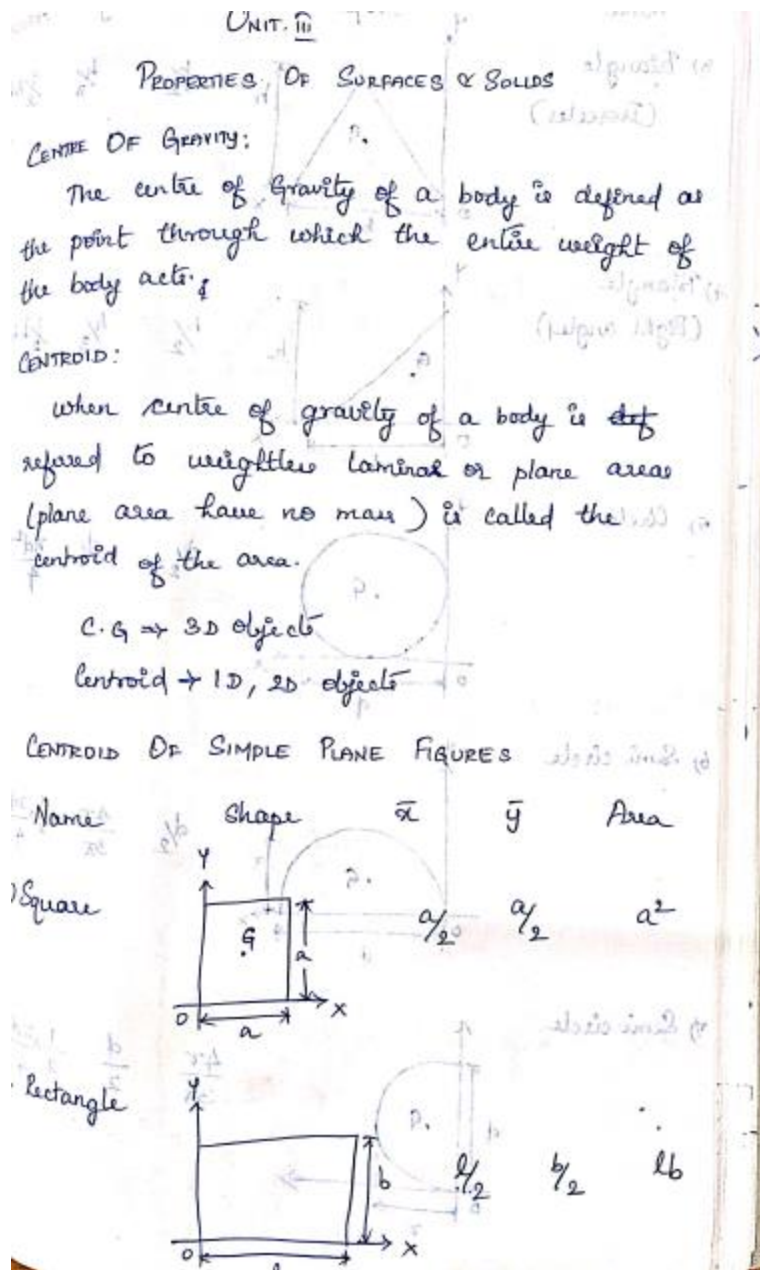 UNIT. III
PROPERTIES OF SURFACES & SOLIDS
CENTRE OF GRAVITY:
The centre of Gravity of a body is defined as
the point through which the entire weight of
the body acts.
CENTROID:
when centre of gravity of a body is def
refered to weightless laminar or plane areas
(plane area have no mass) is called the
centroid of the area.
C.G ⇒ 3D objects
Centroid → 1D, 2D objects
CENTROID OF SIMPLE PLANE FIGURES
Name Shape x̄ ȳ Area
Y
)Square G a a/2 a/2 a²
O a X
Rectangle Y
b l/2 b/2 lb
O l X